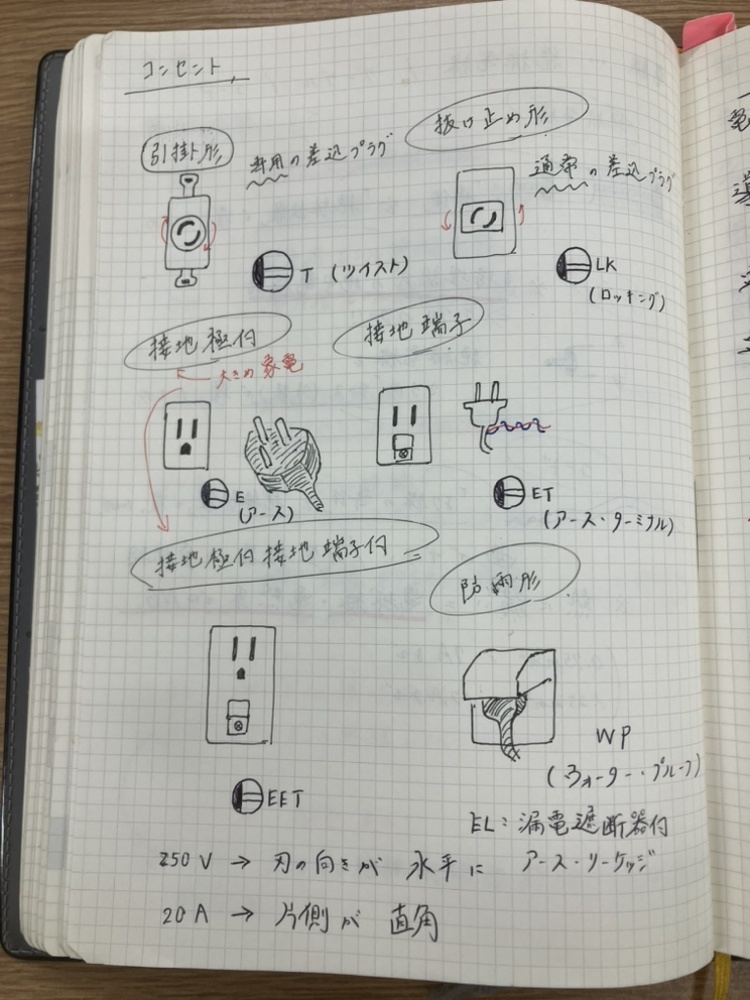 コンセント
引掛形
専用の差込プラグ
T (ツイスト)
抜け止め形
通常の差込プラグ
LK
(ロッキング)
接地極付
大きめ家電
E
(アース)
接地端子
ET
(アース・ターミナル)
接地極付接地端子付
EET
防雨形
WP
(ウォーター・プルーフ)
EL:漏電遮断器付
アース・リーケッジ
250V → 刃の向きが 水平に
20A → 片側が 直角